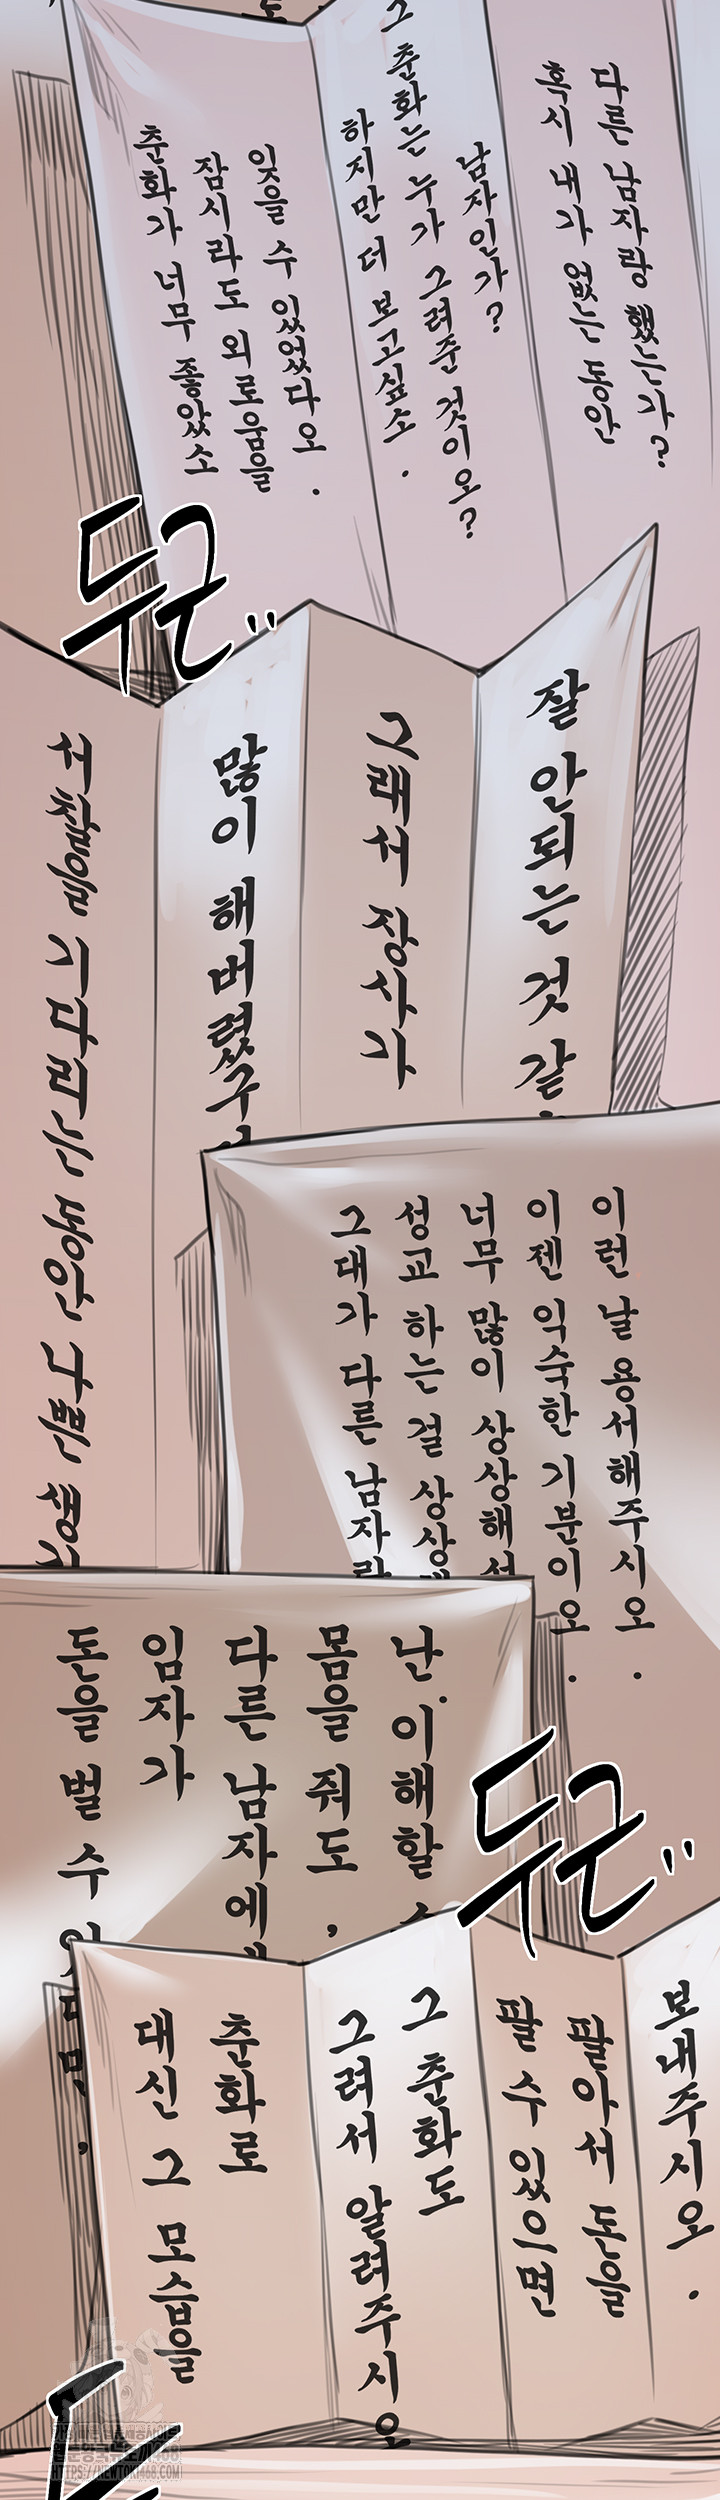 춘화가 너무 좋았소
잠시라도 외로움을
잊을 수 있었다오.
하지만 더 보고싶소.
그 춘화는 누가 그려준 것이오?
남자인가?
혹시 내가 없는 동안
다른 남자랑 했는가?
두근"
서찰을 기다리는 동안 나쁜
많이 해버렸구
그래서 장사가
잘 안되는 것 같
그대가 다른 남자랑
성교 하는 걸 상상
너무 많이 상상해서
이젠 익숙한 기분이오.
이런 날 용서해주시오.
돈을 벌 수 있다면,
임자가
다른 남자에
몸을 줘도,
난 이해할
두근"
대신 그 모습을
춘화로
그려서 알려주시오
그 춘화도
팔 수 있으면
팔아서 돈을
보내주시오.
두
HTTPS://NEWTOKI468.COM